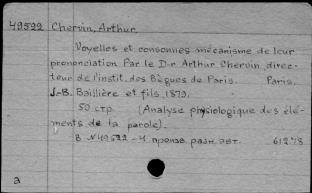 49522 Chervin, Arthur.
Voyelles et consonnes mécanisme de leur
prononciation Par le D-r Arthur Chervin, direc-
teur de l'instit. des Bègues de Paris. Paris.
J.-B. Baillière et fils, 1879.
50 стр. (Analyse physiologique des élé-
ments de la parole).
В №49522 - 4 произв. разн. авт. 612.78
a